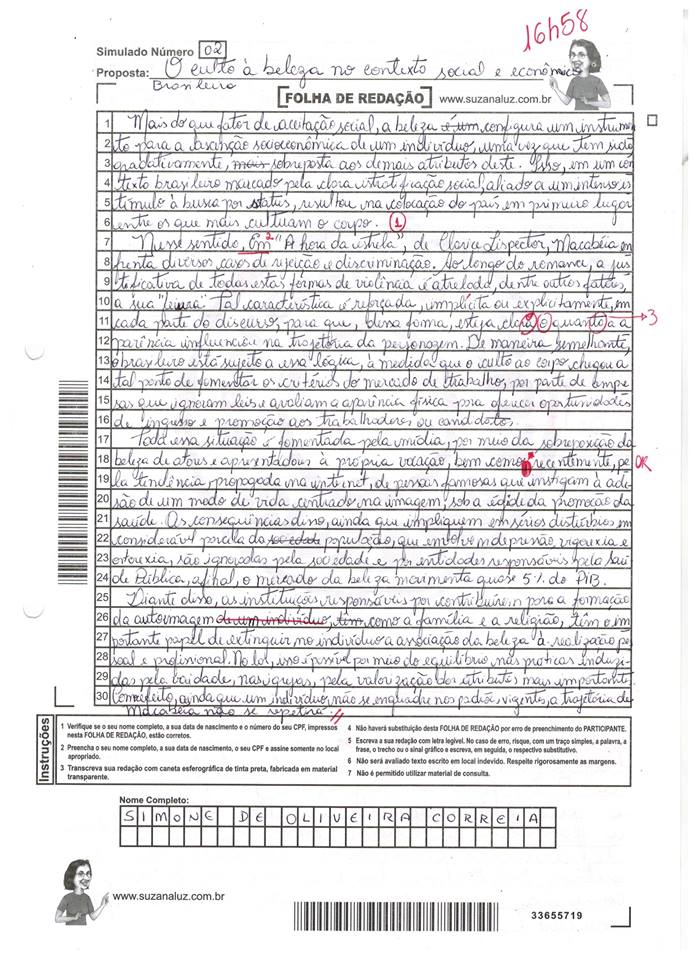 16h58
Simulado Número 02
Proposta: O culto à beleza no contexto social e econômico
Brasileiro
FOLHA DE REDAÇÃO www.suzanaluz.com.br
1 Mais do que fator de aceitação social, a beleza é um configura um instrumen
2 to para a ascenção socioeconômica de um indivíduo, uma vez que tem sido
3 gradativamente, mais sobreposta aos demais atributos deste. Isso, em um con
4 texto brasileiro marcado pela clara estratificação social, aliado a um intenso es
5 tímulo à busca por status, resultou na colocação do país em primeiro lugar
6 entre os que mais cultuam o corpo. 1
7 Nesse sentido, Em 2 "A hora da estrela", de Clarice Lispector, Macabéia en
8 frenta diversos casos de rejeição e discriminação. Ao longo do romance, a jus
9 tificativa de todas estas formas de violência é atrelada, dentre outros fatores,
10 a sua "feiura". Tal característica é reforçada, implícita ou explicitamente, em
11 cada parte do discurso, para que, dessa forma, esteja claro o quanto a a 3
12 parência influenciou na trajetória da personagem. De maneira semelhante,
13 o brasileiro está sujeito a essa lógica, à medida que o culto ao corpo chegou a
14 tal ponto de fomentar os critérios do mercado de trabalho, por parte de empre
15 sas que ignoram leis e avaliam a aparência física para oferecer oportunidades
16 de ingresso e promoção aos trabalhadores ou candidatos.
17 Toda essa situação é fomentada pela mídia, por meio da sobreposição da
18 beleza de atores e apresentadores à própria vocação, bem como, recentemente, pe OR
19 la tendência propagada na internet, de pessoas famosas que instigam à ade
20 são de um modo de vida centrado na imagem, sob a égide da promoção da
21 saúde. As consequências disso, ainda que impliquem em sérios distúrbios em
22 considerável parcela da sociedade população, que envolvem depressão, vigorexia e
23 ortorexia, são ignoradas pela sociedade e por entidades responsáveis pela Saú
24 de Pública, afinal, o mercado da beleza movimenta quase 5% do PIB.
25 Diante disso, as instituições responsáveis por contribuírem para a formação
26 da autoimagem de um indivíduo, têm, como a família e a religião, têm o im
27 portante papel de extinguir no indivíduo a associação da beleza à realização pes
28 soal e profissional. No lar, isso é possível por meio do equilíbrio nas práticas induzi
29 das pela vaidade, nas igrejas, pela valorização dos atributos mais importantes.
30 Com efeito, ainda que um indivíduo não se enquadre nos padrões vigentes, a trajetória de
Macabéia não se repetirá.
Instruções
1 Verifique se o seu nome completo, a sua data de nascimento e o número do seu CPF, impressos
nesta FOLHA DE REDAÇÃO, estão corretos.
2 Preencha o seu nome completo, a sua data de nascimento, o seu CPF e assine somente no local
apropriado.
3 Transcreva sua redação com caneta esferográfica de tinta preta, fabricada em material
transparente.
4 Não haverá substituição desta FOLHA DE REDAÇÃO por erro de preenchimento do PARTICIPANTE.
5 Escreva a sua redação com letra legível. No caso de erro, risque, com um traço simples, a palavra, a
frase, o trecho ou o sinal gráfico e escreva, em seguida, o respectivo substitutivo.
6 Não será avaliado texto escrito em local indevido. Respeite rigorosamente as margens.
7 Não é permitido utilizar material de consulta.
Nome Completo:
SIMONE DE OLIVEIRA CORREIA
www.suzanaluz.com.br
33655719